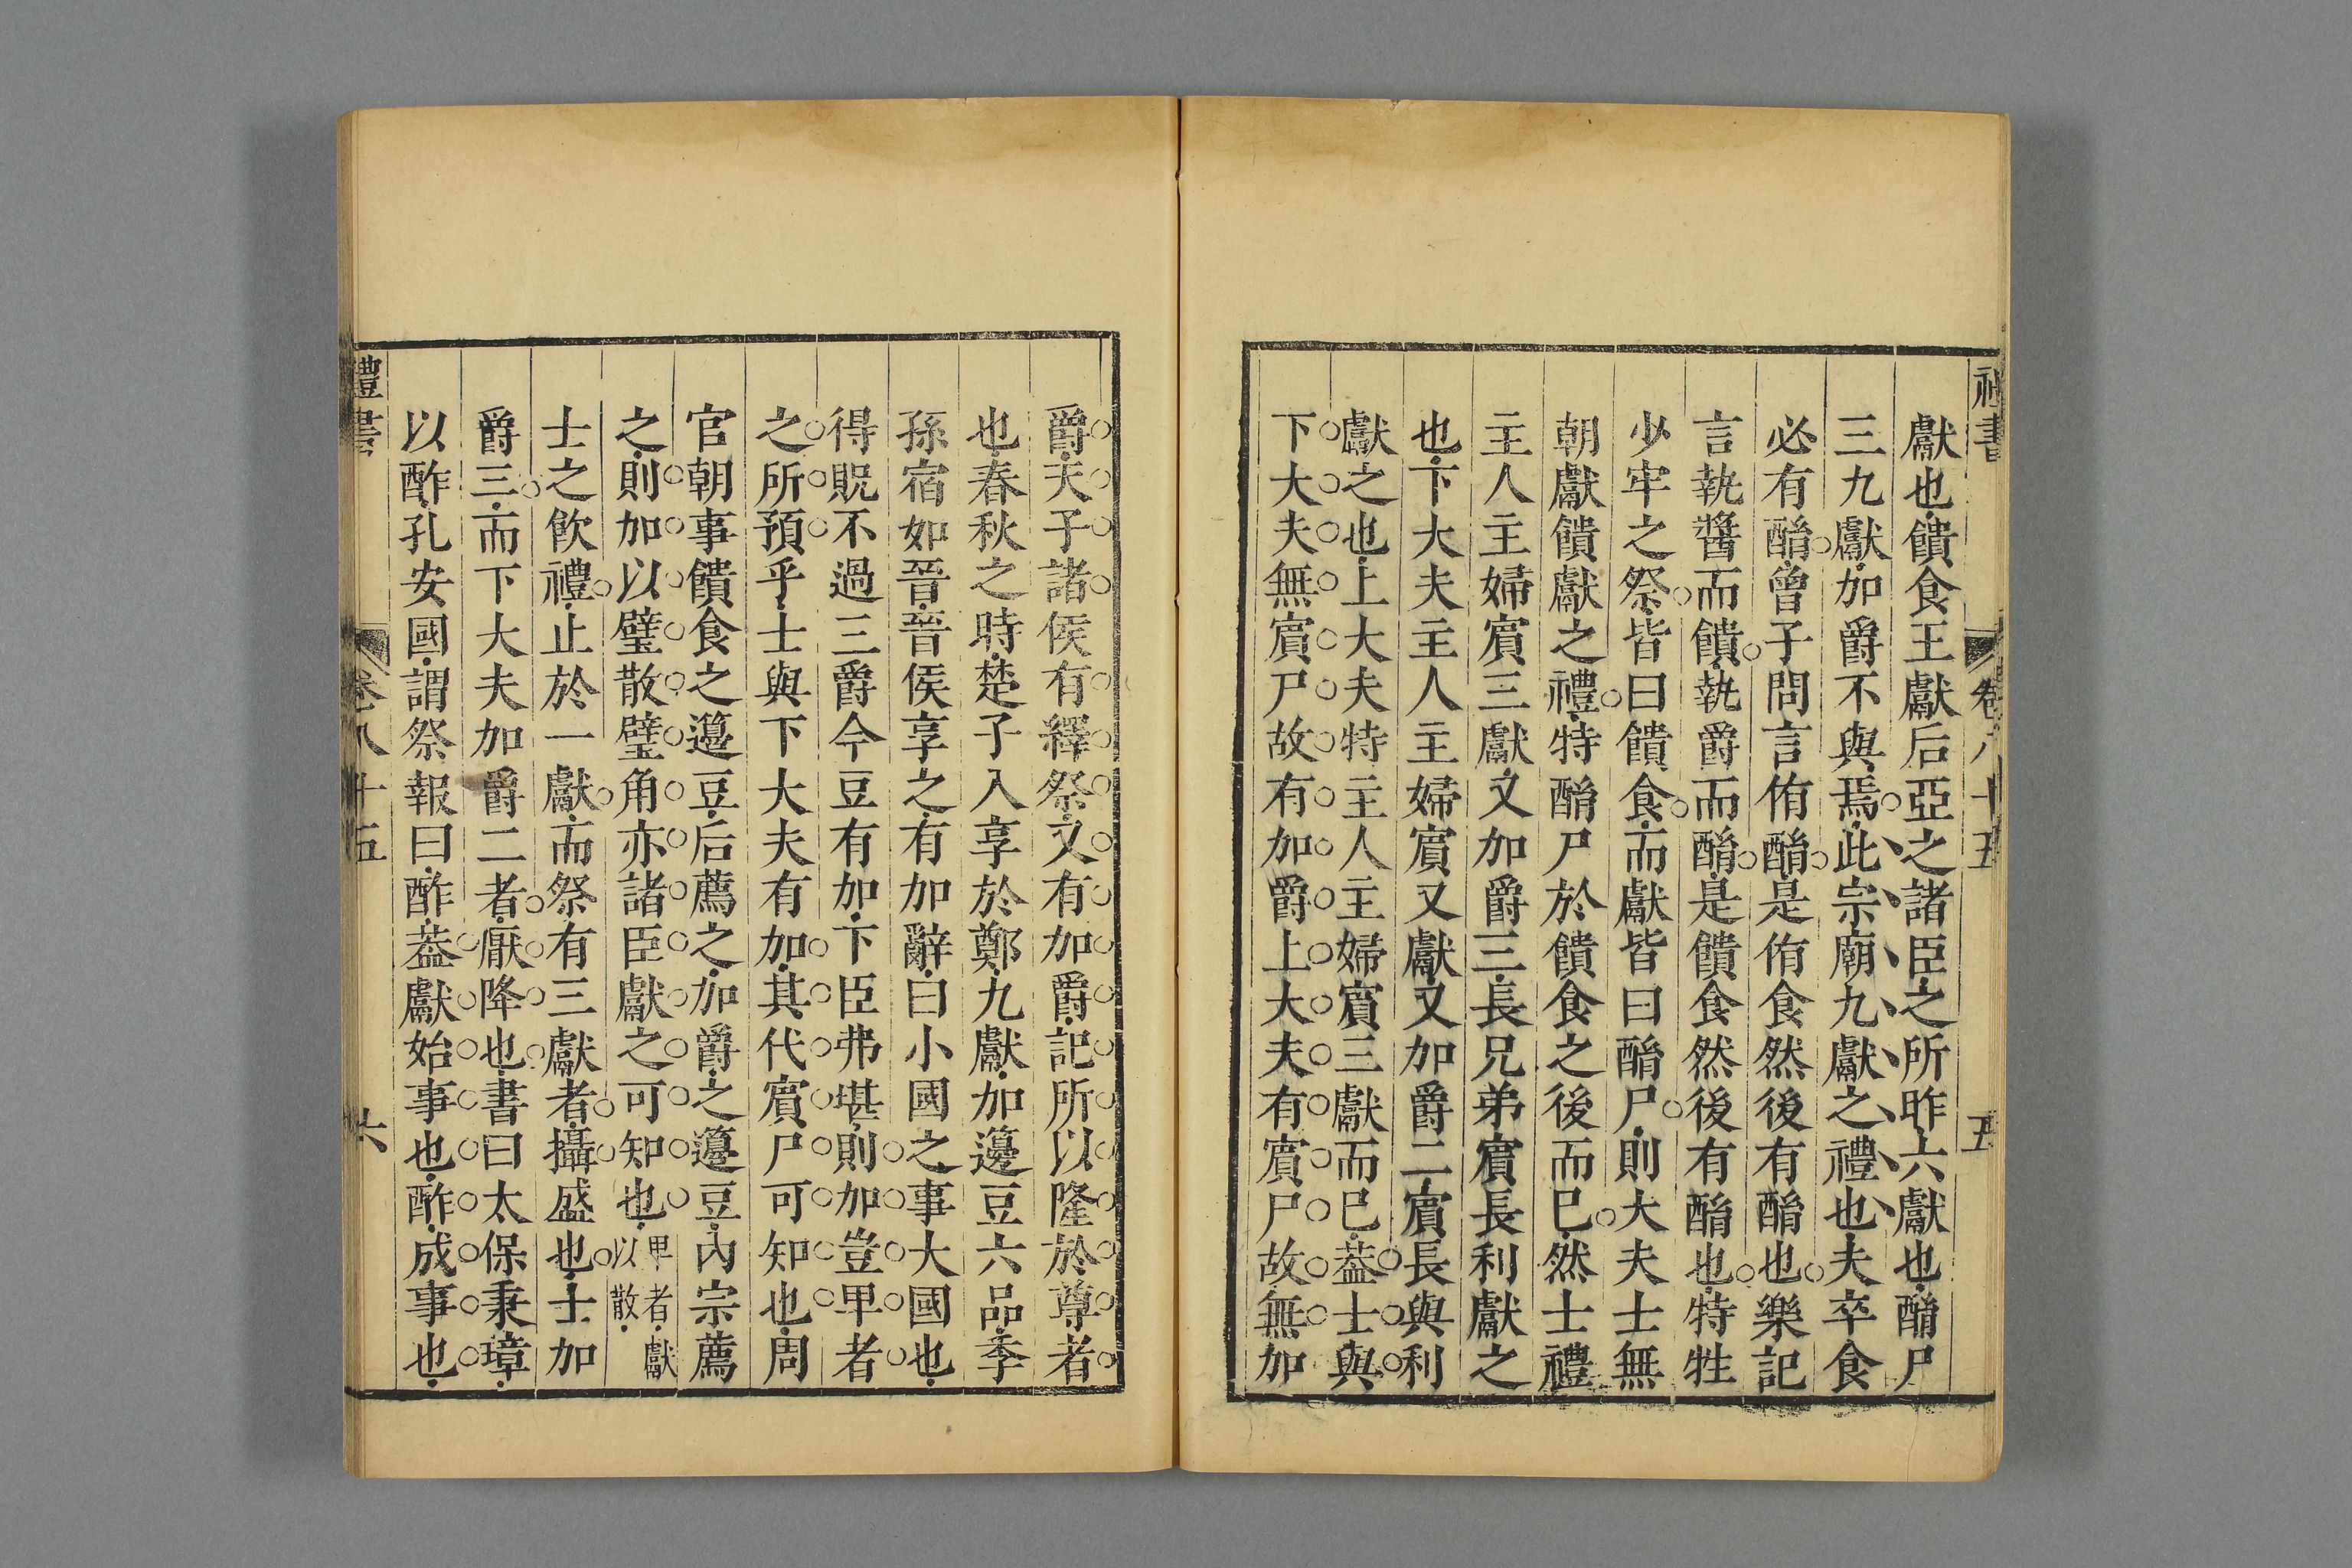 禮書 卷八十五 五
獻也饋食王獻后亞之諸臣之所昨六獻也酳尸
三九獻加爵不與焉此宗廟九獻之禮也夫卒食
必有酳曾子問言侑酳是侑食然後有酳也樂記
言執醬而饋執爵而酳是饋食然後有酳也特牲
少牢之祭皆曰饋食而獻皆曰酳尸則大夫士無
朝獻饋獻之禮特酳尸於饋食之後而已然士禮
主人主婦賓三獻又加爵三長兄弟賓長利獻之
也下大夫主人主婦賓又獻又加爵二賓長與利
獻之也上大夫特主人主婦賓三獻而已蓋士與
下大夫無賓尸故有加爵上大夫有賓尸故無加
爵天子諸侯有繹祭又有加爵記所以隆於尊者
也春秋之時楚子入享於鄭九獻加籩豆六品季
孫宿如晉晉侯享之有加辭曰小國之事大國也
得貺不過三爵今豆有加下臣弗堪則加豈卑者
之所預乎士與下大夫有加其代賓尸可知也周
官朝事饋食之籩豆后薦之加爵之籩豆內宗薦
之則加以璧散璧角亦諸臣獻之可知也卑者獻以散
士之飲禮止於一獻而祭有三獻者攝盛也士加
爵三而下大夫加爵二者厭降也書曰太保秉璋
以酢孔安國謂祭報曰酢蓋獻始事也酢成事也
禮書 卷八十五 六